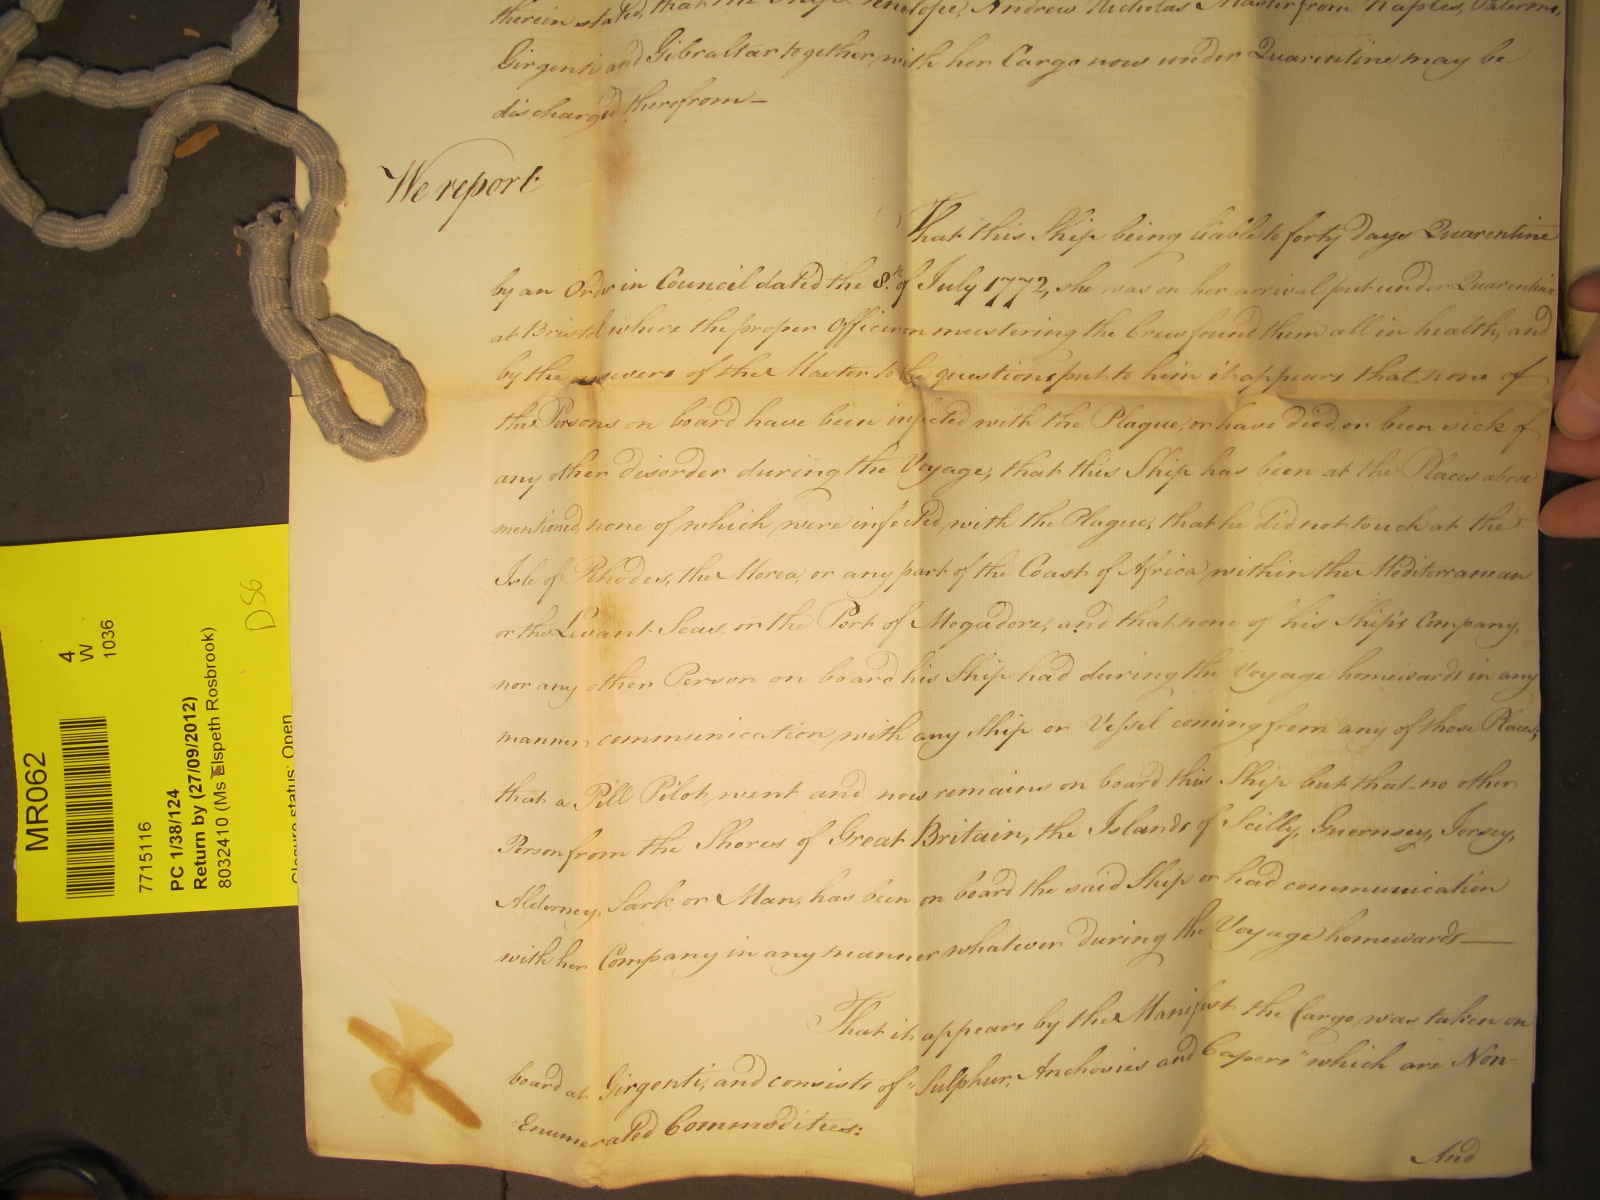 therein stated, that the Ship Penelope, Andrew Nicholas Master from Naples, Palermo,
Girgenti and Gibraltar together with her Cargo now under Quarentine may be
discharged therefrom—
We report
That this Ship being liable to forty days Quarentine
by an Order in Council dated the 8th. of July 1772, she was on her arrival put under Quarentine
at Bristol where the proper Officer on mustering the Crew found them all in health, and
by the answers of the Master to the questions put to him it appears that none of
the Persons on board have been infected with the Plague, or have died or been sick of
any other disorder during the Voyage, that this Ship has been at the Places above
mentioned, none of which were infected with the Plague, that he did not touch at the
Isle of Rhodes, the Morea, or any part of the Coast of Africa, within the Mediterranean
or the Levant Seas, or the Port of Mogadore, and that none of his Ship's Company,
nor any other Person on board his Ship had during the Voyage homewards in any
manner communication, with any Ship or Vessel coming from any of those Places;
that a Pill Pilot, went and now remains on board this Ship but that no other
Person from the Shores of Great Britain, the Islands of Scilly, Guernsey, Jersey,
Alderney, Sark or Man, has been on board the said Ship or had communication
with her Company in any manner whatever during the Voyage homewards—
That it appears by the Manifest the Cargo was taken on
board at Girgenti, and consists of "Sulphur, Anchovies and Capers" which are Non-
Enumerated Commodities:
And
MR062
4
W
1036
7715116
PC 1/38/124
Return by (27/09/2012)
8032410 (Ms Elspeth Rosbrook)
Closure status: Open
D56